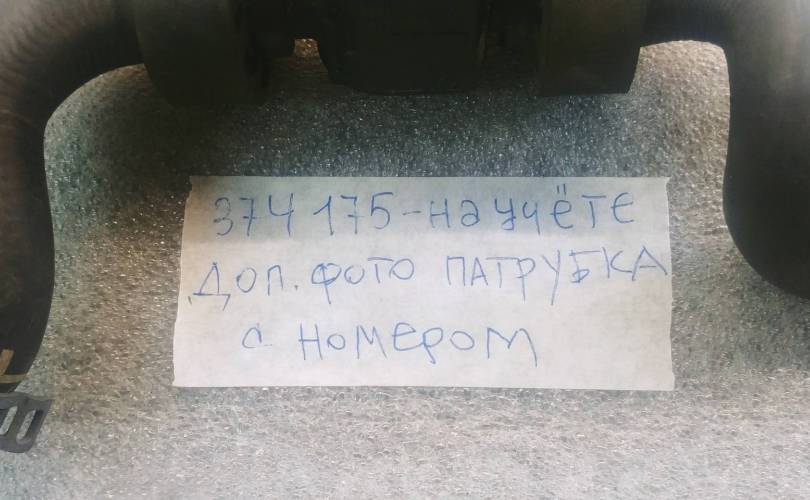 374175-на учёте
Доп. фото ПАТРУБКА
с номером